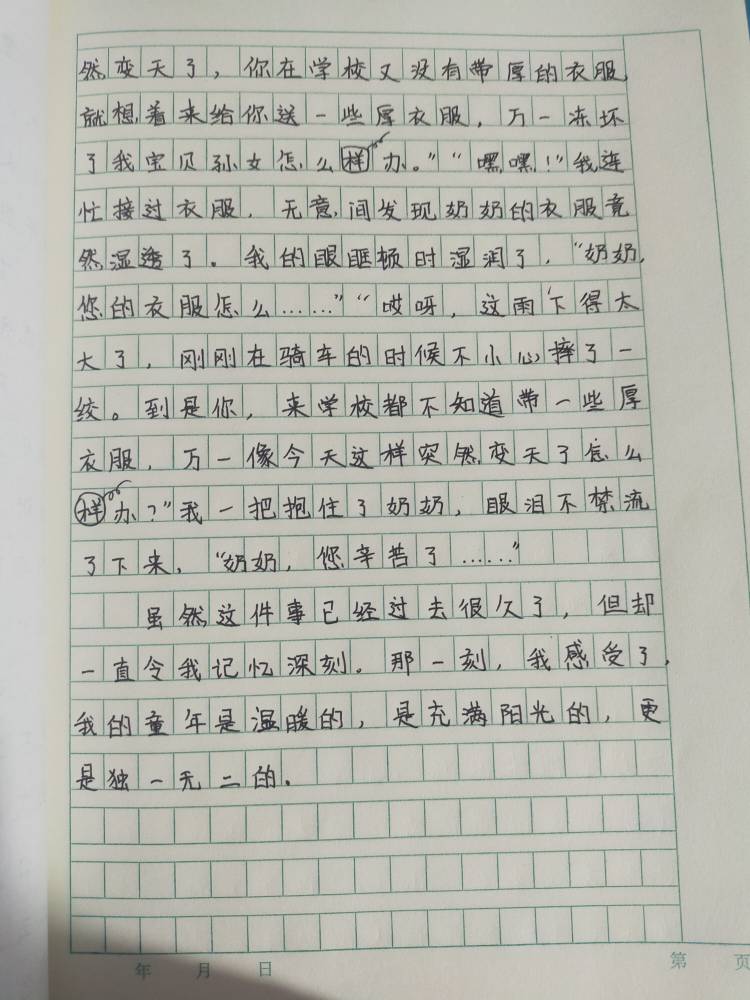 然变天了，你在学校又没有带厚的衣服
就想着来给你送一些厚衣服，万一冻坏
了我宝贝孙女怎么样办。”“嘿嘿！”我连
忙接过衣服，无意间发现奶奶的衣服竟
然湿透了。我的眼眶顿时湿润了，“奶奶，
您的衣服怎么……”“哎呀，这雨下得太
大了，刚刚在骑车的时候不小心摔了一
绞。到是你，来学校都不知道带一些厚
衣服，万一像今天这样突然变天了怎么
样办？”我一把抱住了奶奶，眼泪不禁流
了下来，“奶奶，您辛苦了……”
虽然这件事已经过去很久了，但却
一直令我记忆深刻。那一刻，我感受了，
我的童年是温暖的，是充满阳光的，更
是独一无二的。
年 月 日 第 页